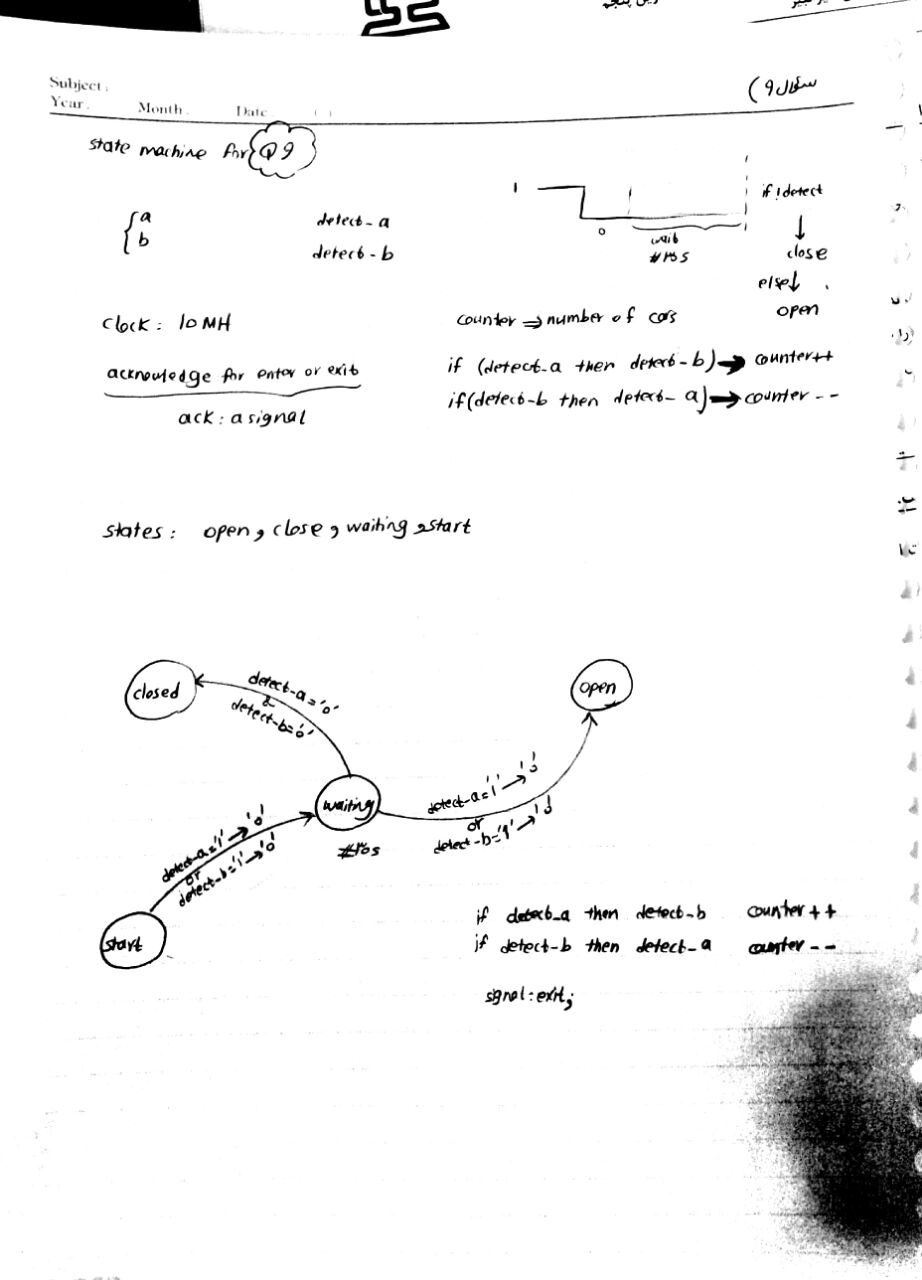 سؤال 9)
Subject.
Year. Month. Date. ( )
state machine for Q 9
{ a detect-a
b detect-b
1
0
wait
if !detect
↓
close
else ↓
open
clock: 10 MH
counter ⇒ number of cars
acknowledge for enter or exit
ack: a signal
if (detect-a then detect-b) → counter++
if (detect-b then detect-a) → counter --
states: open, close, waiting, start
closed
detect-a='0'
&
detect-b='0'
open
waiting
detect-a='1' → '0'
or
detect-b='1' → '0'
detect-a='1' → '0'
or
detect-b='1' → '0'
start
if detect-a then detect-b counter ++
if detect-b then detect-a counter --
signal: exit;